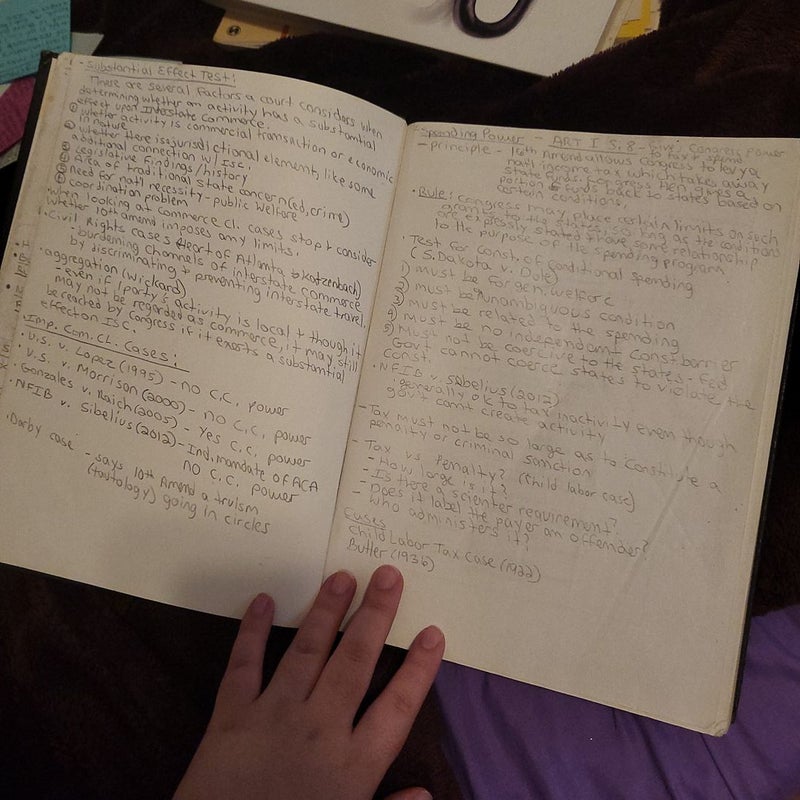 - Substantial Effect Test:
These are several factors a court considers when
determining whether an activity has a substantial
effect upon interstate commerce.
① whether activity is commercial transaction or economic
in nature
② whether there is jurisdictional element, like some
additional connection w/ ISC.
③ Legislative findings/history
④ Area of traditional state concern (ed, crime)
⑤ need for nat'l necessity - public welfare
⑥ coordination problem
when looking at commerce cl. cases stop & consider
whether 10th amend imposes any limits.
• Civil Rights cases (Heart of Atlanta & Katzenbach)
- burdening channels of interstate commerce
by discriminating & preventing interstate travel.
• aggregation (Wickard)
- even if 1 party's activity is local & though it
may not be regarded as commerce, it may still
be reached by Congress if it exerts a substantial
effect on ISC.
Imp. Com. Cl. Cases:
• U.S. v. Lopez (1995) - no C.C. power
• U.S. v. Morrison (2000) - no C.C. power
• Gonzales v. Raich (2005) - Yes C.C. power
• NFIB v. Sibelius (2012) - Ind. mandate of ACA
no C.C. power
• Darby case - says 10th Amend a truism
(tautology) going in circles
- Spending Power - ART I S.8 - give Congress power
to tax & spend
- principle - 16th Amend allows Congress to levy a
nat'l income tax which takes away
state funds. Congress then gives a
portion of funds back to states based on
certain conditions.
• Rule: Congress may place certain limits on such
grants to the states, so long as the conditions
are expressly stated & have some relationship
to the purpose of the spending program.
• Test for Const. of conditional spending
(S. Dakota v. Dole)
1) must be for gen. welfare
2) must be unambiguous condition
3) must be related to the spending
4) must be no independent const. barrier
5) Must not be coercive to the states - Fed
Gov't cannot coerce states to violate the
Const.
• NFIB v. Sibelius (2012)
• generally ok to tax inactivity even though
gov't can't create activity
- Tax must not be so large as to constitute a
penalty or criminal sanction
- Tax vs. Penalty? (Child labor case)
- How large is it?
- Is there a scienter requirement?
- Does it label the payer an offender?
- who administers it?
Cases
Child Labor Tax Case (1922)
Butler (1936)